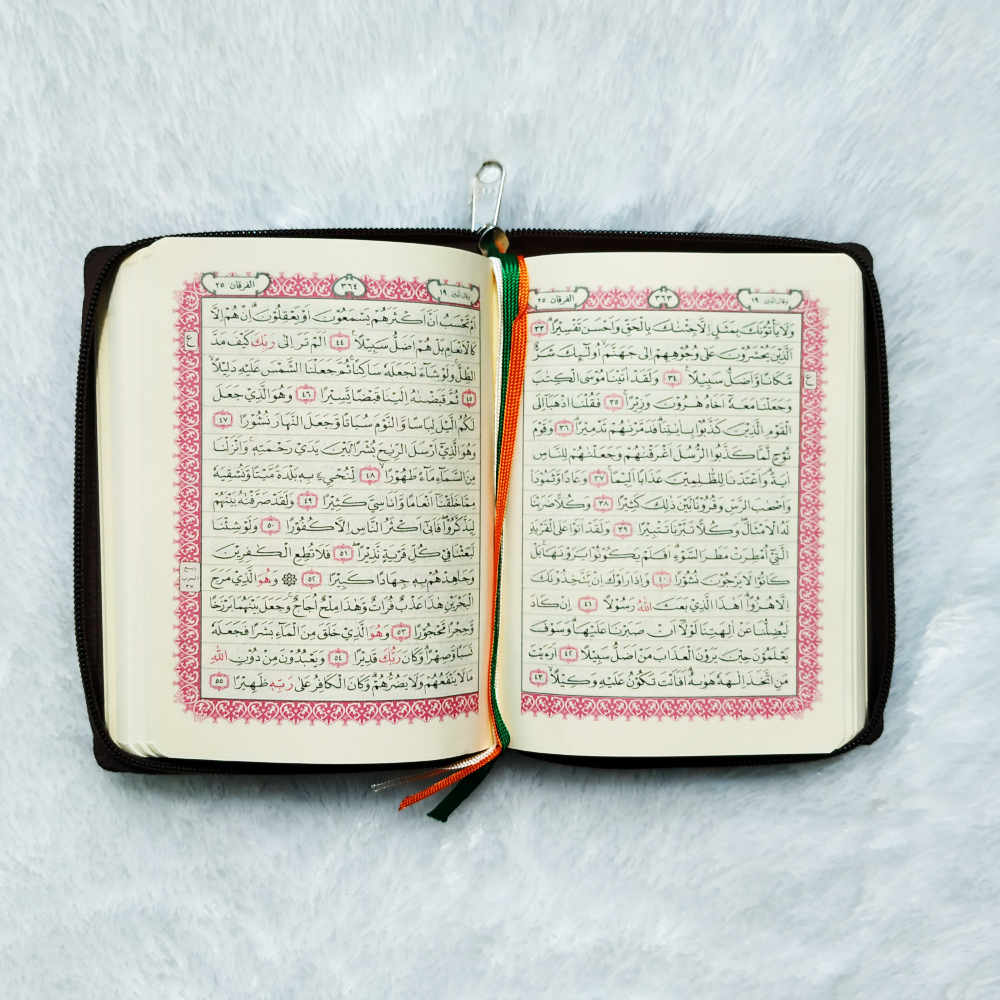 وقال الذين ١٩ ٣٦٣ الفرقان ٢٥
وَلَا يَأْتُونَكَ بِمَثَلٍ اِلَّا جِئْنٰكَ بِالْحَقِّ وَاَحْسَنَ تَفْسِيْرًا ۗ ٣٣
اَلَّذِيْنَ يُحْشَرُوْنَ عَلٰى وُجُوْهِهِمْ اِلٰى جَهَنَّمَ اُولٰۤىِٕكَ شَرٌّ
مَّكَانًا وَّاَضَلُّ سَبِيْلًا ٣٤ وَلَقَدْ اٰتَيْنَا مُوْسَى الْكِتٰبَ
وَجَعَلْنَا مَعَهٗٓ اَخَاهُ هٰرُوْنَ وَزِيْرًا ٣٥ فَقُلْنَا اذْهَبَآ اِلَى
الْقَوْمِ الَّذِيْنَ كَذَّبُوْا بِاٰيٰتِنَا فَدَمَّرْنٰهُمْ تَدْمِيْرًا ٣٦ وَقَوْمَ
نُوْحٍ لَّمَّا كَذَّبُوا الرُّسُلَ اَغْرَقْنٰهُمْ وَجَعَلْنٰهُمْ لِلنَّاسِ
اٰيَةً وَاَعْتَدْنَا لِلظّٰلِمِيْنَ عَذَابًا اَلِيْمًا ٣٧ وَعَادًا وَّثَمُوْدَا۟
وَاَصْحٰبَ الرَّسِّ وَقُرُوْنًا بَيْنَ ذٰلِكَ كَثِيْرًا ٣٨ وَكُلًّا ضَرَبْنَا
لَهُ الْاَمْثَالَ وَكُلًّا تَبَّرْنَا تَتْبِيْرًا ٣٩ وَلَقَدْ اَتَوْا عَلَى الْقَرْيَةِ
الَّتِيْٓ اُمْطِرَتْ مَطَرَ السَّوْءِ اَفَلَمْ يَكُوْنُوْا يَرَوْنَهَا بَلْ
كَانُوْا لَا يَرْجُوْنَ نُشُوْرًا ٤٠ وَاِذَا رَاَوْكَ اِنْ يَّتَّخِذُوْنَكَ
اِلَّا هُزُوًا اَهٰذَا الَّذِيْ بَعَثَ اللّٰهُ رَسُوْلًا ٤١ اِنْ كَادَ
لَيُضِلُّنَا عَنْ اٰلِهَتِنَا لَوْلَآ اَنْ صَبَرْنَا عَلَيْهَا وَسَوْفَ
يَعْلَمُوْنَ حِيْنَ يَرَوْنَ الْعَذَابَ مَنْ اَضَلُّ سَبِيْلًا ٤٢ اَرَءَيْتَ
مَنِ اتَّخَذَ اِلٰهَهٗ هَوٰىهُ اَفَاَنْتَ تَكُوْنُ عَلَيْهِ وَكِيْلًا ٤٣
وقال الذين ١٩ ٣٦٤ الفرقان ٢٥
اَمْ تَحْسَبُ اَنَّ اَكْثَرَهُمْ يَسْمَعُوْنَ اَوْ يَعْقِلُوْنَ اِنْ هُمْ اِلَّا
كَالْاَنْعَامِ بَلْ هُمْ اَضَلُّ سَبِيْلًا ٤٤ اَلَمْ تَرَ اِلٰى رَبِّكَ كَيْفَ مَدَّ
الظِّلَّ وَلَوْ شَآءَ لَجَعَلَهٗ سَاكِنًا ثُمَّ جَعَلْنَا الشَّمْسَ عَلَيْهِ دَلِيْلًا
٤٥ ثُمَّ قَبَضْنٰهُ اِلَيْنَا قَبْضًا يَّسِيْرًا ٤٦ وَهُوَ الَّذِيْ جَعَلَ
لَكُمُ الَّيْلَ لِبَاسًا وَّالنَّوْمَ سُبَاتًا وَّجَعَلَ النَّهَارَ نُشُوْرًا ٤٧
وَهُوَ الَّذِيْٓ اَرْسَلَ الرِّيٰحَ بُشْرًا بَيْنَ يَدَيْ رَحْمَتِهٖ وَاَنْزَلْنَا
مِنَ السَّمَآءِ مَآءً طَهُوْرًا ٤٨ لِّنُحْيِيَ بِهٖ بَلْدَةً مَّيْتًا وَّنُسْقِيَهٗ
مِمَّا خَلَقْنَآ اَنْعَامًا وَّاَنَاسِيَّ كَثِيْرًا ٤٩ وَلَقَدْ صَرَّفْنٰهُ بَيْنَهُمْ
لِيَذَّكَّرُوْا فَاَبٰىٓ اَكْثَرُ النَّاسِ اِلَّا كُفُوْرًا ٥٠ وَلَوْ شِئْنَا
لَبَعَثْنَا فِيْ كُلِّ قَرْيَةٍ نَّذِيْرًا ٥١ فَلَا تُطِعِ الْكٰفِرِيْنَ
وَجَاهِدْهُمْ بِهٖ جِهَادًا كَبِيْرًا ٥٢ ۞ وَهُوَ الَّذِيْ مَرَجَ
الْبَحْرَيْنِ هٰذَا عَذْبٌ فُرَاتٌ وَّهٰذَا مِلْحٌ اُجَاجٌ وَجَعَلَ بَيْنَهُمَا بَرْزَخًا
وَّحِجْرًا مَّحْجُوْرًا ٥٣ وَهُوَ الَّذِيْ خَلَقَ مِنَ الْمَآءِ بَشَرًا فَجَعَلَهٗ
نَسَبًا وَّصِهْرًا وَكَانَ رَبُّكَ قَدِيْرًا ٥٤ وَيَعْبُدُوْنَ مِنْ دُوْنِ اللّٰهِ
مَا لَا يَنْفَعُهُمْ وَلَا يَضُرُّهُمْ وَكَانَ الْكَافِرُ عَلٰى رَبِّهٖ ظَهِيْرًا ٥٥